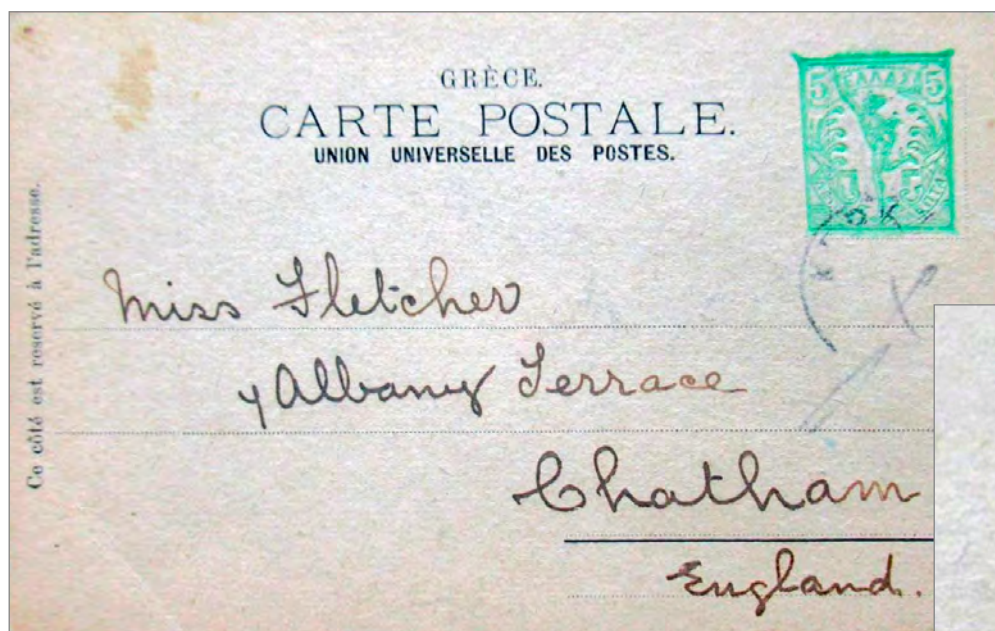 GRÈCE.
CARTE POSTALE.
UNION UNIVERSELLE DES POSTES.
5 ΕΛΛΑΣ 5
Ce côté est reservé à l'adresse.
Miss Fletcher
4 Albany Terrace
Chatham
England.